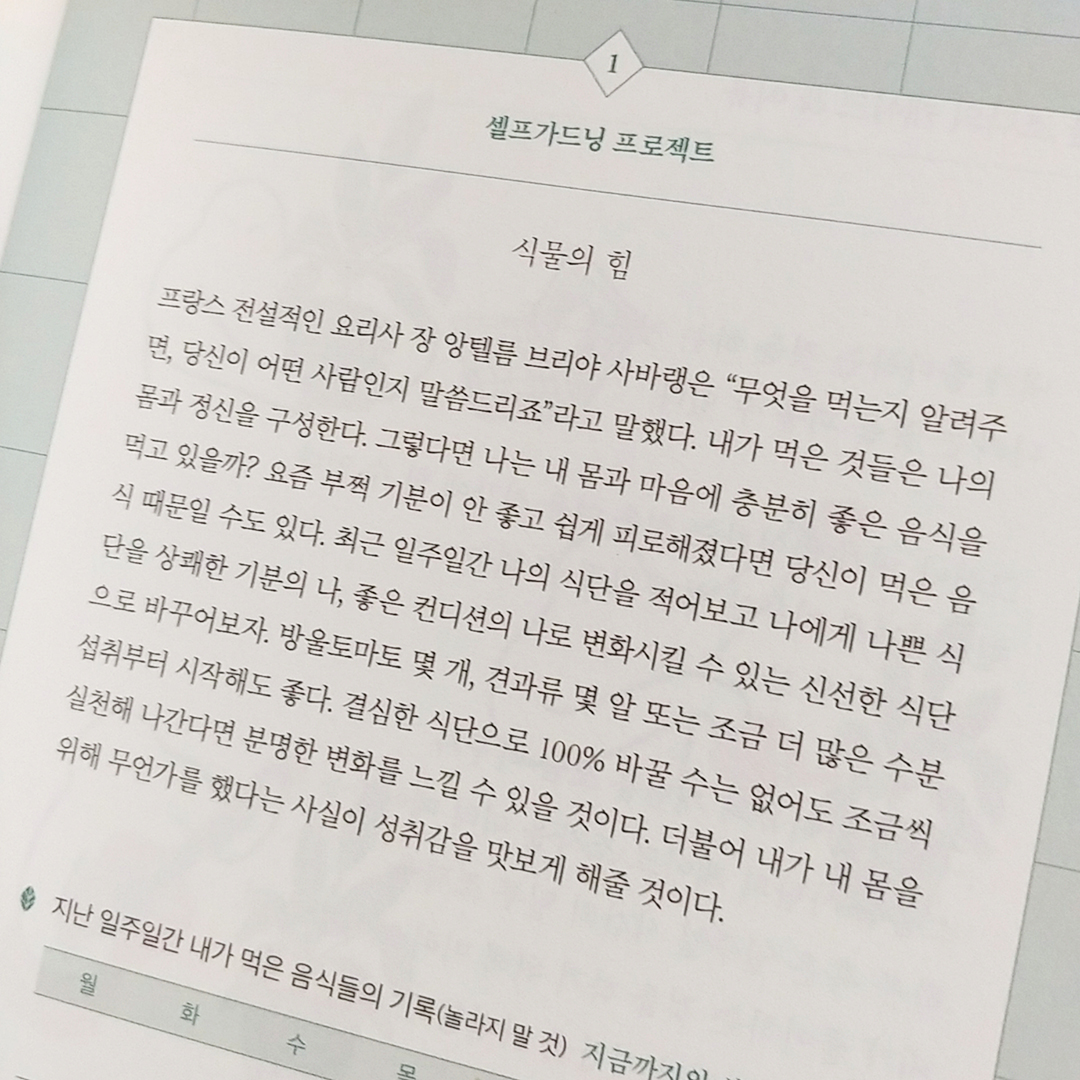 1
셀프가드닝 프로젝트
식물의 힘
프랑스 전설적인 요리사 장 앙텔름 브리야 사바랭은 “무엇을 먹는지 알려주
면, 당신이 어떤 사람인지 말씀드리죠”라고 말했다. 내가 먹은 것들은 나의
몸과 정신을 구성한다. 그렇다면 나는 내 몸과 마음에 충분히 좋은 음식을
먹고 있을까? 요즘 부쩍 기분이 안 좋고 쉽게 피로해졌다면 당신이 먹은 음
식 때문일 수도 있다. 최근 일주일간 나의 식단을 적어보고 나에게 나쁜 식
단을 상쾌한 기분의 나, 좋은 컨디션의 나로 변화시킬 수 있는 신선한 식단
으로 바꾸어보자. 방울토마토 몇 개, 견과류 몇 알 또는 조금 더 많은 수분
섭취부터 시작해도 좋다. 결심한 식단으로 100% 바꿀 수는 없어도 조금씩
실천해 나간다면 분명한 변화를 느낄 수 있을 것이다. 더불어 내가 내 몸을
위해 무언가를 했다는 사실이 성취감을 맛보게 해줄 것이다.
지난 일주일간 내가 먹은 음식들의 기록(놀라지 말 것) 지금까지의
월 화 수 목